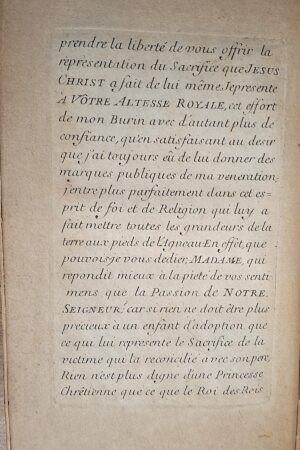 prendre la liberté de vous offrir la
représentation du Sacrifice que JESUS
CHRIST a fait de lui même. Je presente
A VÔTRE ALTESSE ROYALE, cet effort
de mon Burin avec d'autant plus de
confiance, qu'en satisfaisant au desir
que j'ai toujours eü de lui donner des
marques publiques de ma veneration,
j'entre plus parfaitement dans cet es-
prit de foi et de Religion qui luy a
fait mettre toutes les grandeurs de la
terre aux pieds de l'Agneau. En effet, que
pouvois-je vous dedier, MADAME, qui
repondit mieux à la pieté de vos senti
mens que la Passion de NOTRE
SEIGNEUR; car si rien ne doit être plus
precieux a un enfant d'adoption que
ce qui lui represente le Sacrifice de la
victime qui la reconcilié avec son pere,
Rien n'est plus digne d'une Princesse
Chrêtienne que ce que le Roi des Rois